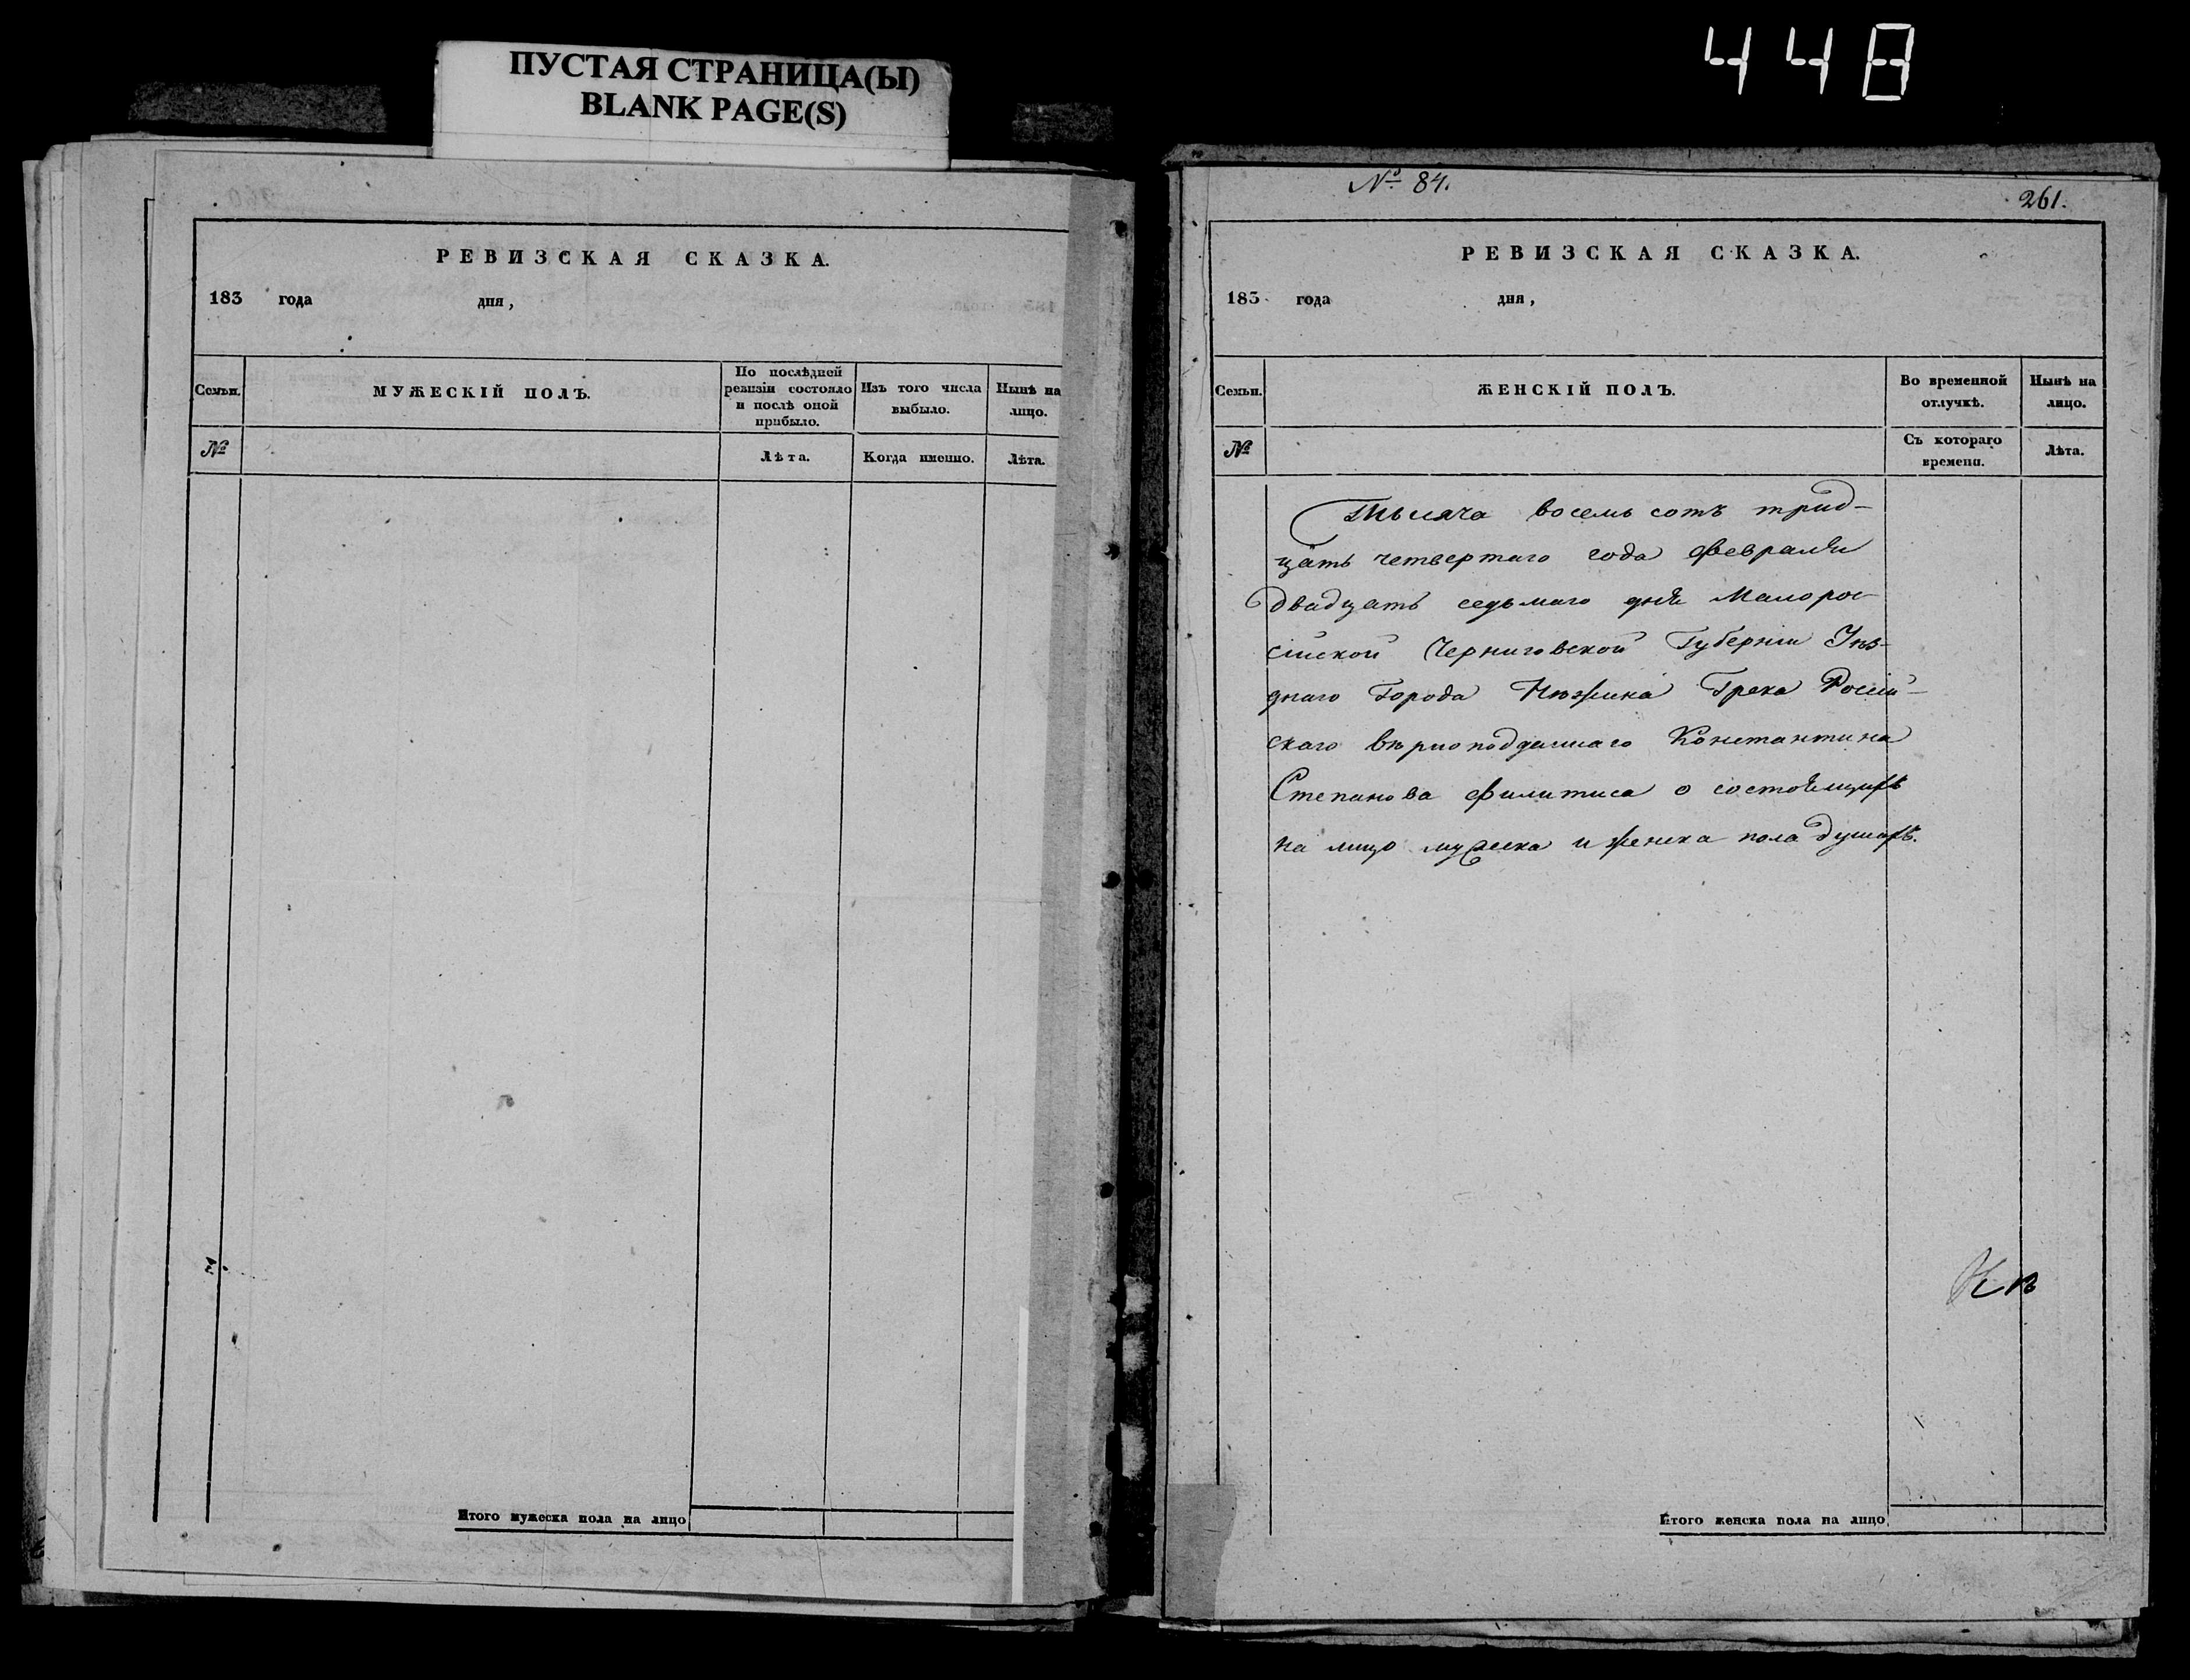 ПУСТАЯ СТРАНИЦА(Ы)
BLANK PAGE(S)
448
РЕВИЗСКАЯ СКАЗКА.
183 года дня,
Семьи.
МУЖЕСКІЙ ПОЛЪ.
По послѣдней
ревизіи состояло
и послѣ оной
прибыло.
Изъ того числа
выбыло.
Нынѣ на
лицо.
№
Лѣта.
Когда именно.
Лѣта.
Итого мужеска пола на лицо
№ 84.
261.
РЕВИЗСКАЯ СКАЗКА.
183 года дня,
Семьи.
ЖЕНСКІЙ ПОЛЪ.
Во временной
отлучкѣ.
Нынѣ на
лицо.
№
Съ котораго
времени.
Лѣта.
Тысяча восемь сотъ трид-
цать четвертаго года февраля
двадцать седьмаго дня Малорос-
сійской Черниговской Губерніи Уѣз-
днаго Города Нѣжина Грека Россій-
скаго вѣрноподданнаго Константина
Степанова Филитиса о состоящихъ
на лицо мужеска и женска пола душахъ.
Итого женска пола на лицо